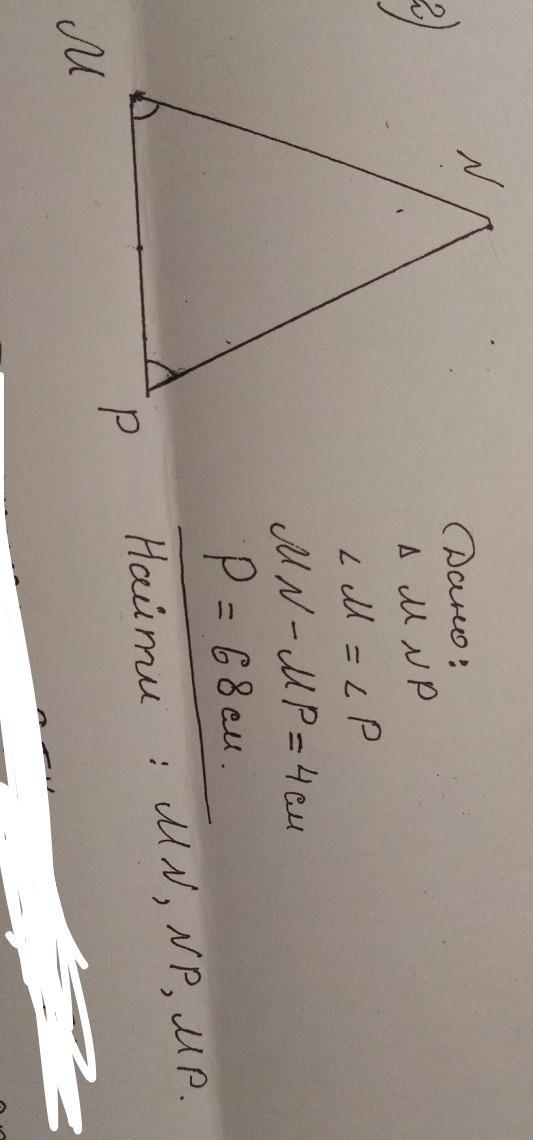 2)
N
M
P
Дано:
Δ MNP
∠M = ∠P
MN - MP = 4 см
P = 68 см.
Найти : MN, NP, MP.